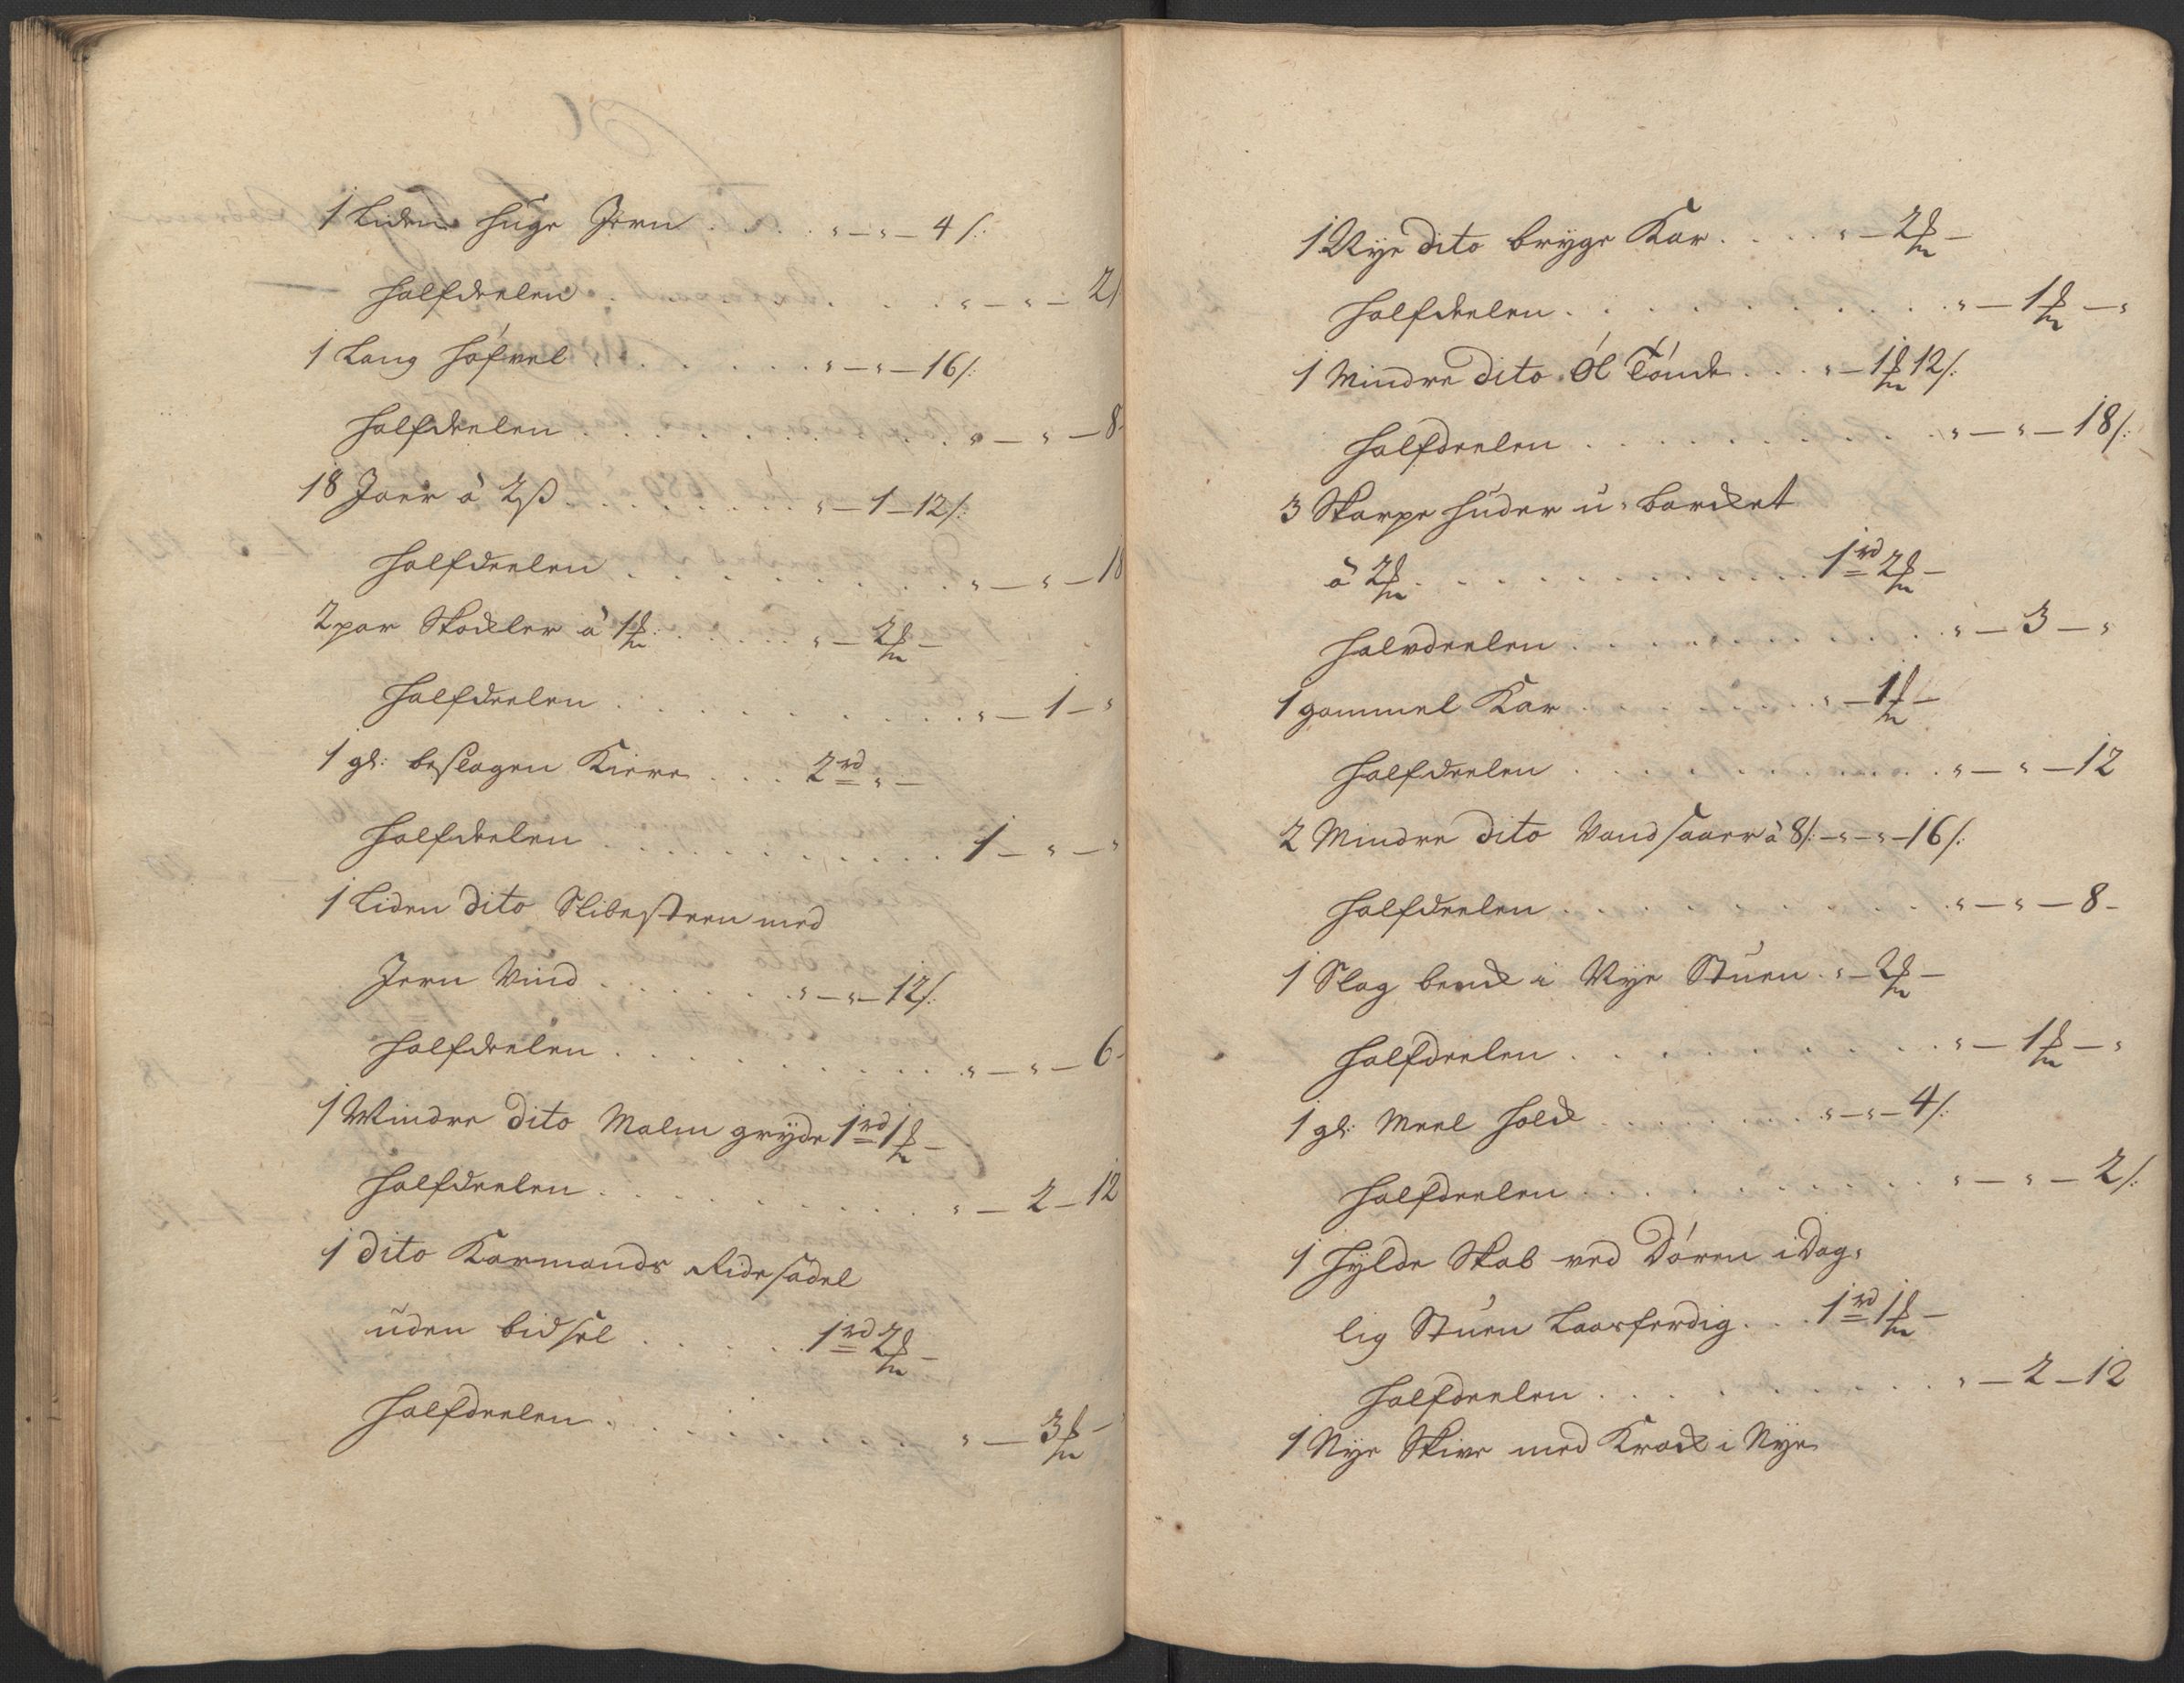 1 Liden Huge Jern . . . . " — " — 4 ſ:
Halfdeelen . . . . . . . . " — " — 2 ſ
1 Lang Höfvel . . . . . . " — " — 16 ſ:
Halfdeelen . . . . . . . . " — " — 8
18 Jaer à 2 ß . . . . . . . " — 1 — 12 ſ:
Halfdeelen . . . . . . . . " — " — 18
2 par Skakler à 1 mk: . . . . " — 2 mk —
Halfdeelen . . . . . . . . " — 1 — "
1 gl: beslagen Kierre . . . 2 rd " —
Halfdeelen . . . . . . . . 1 — " — "
1 Liden dito Slibesteen med
Jern Vind . . . . . . . " — " — 12 ſ:
Halfdeelen . . . . . . . . " — " — 6
1 Mindre dito Malm gryde 1 rd 1 mk —
Halfdeelen . . . . . . . . " — 2 — 12
1 dito Karmands Ridesadel
uden bidsel . . . . . 1 rd 2 mk —
Halfdeelen . . . . . . . . " — 3 mk —
1 Nye dito brygge Kar . . . . " — 2 mk —
Halfdeelen . . . . . . . . " — 1 mk — "
1 Mindre dito Öl Tönde . . . " — 1 mk 12 ſ:
Halfdeelen . . . . . . . . " — " — 18 ſ:
3 Skarpe huder u-barcket
à 2 mk . . . . . . . . . 1 rd 2 mk —
Halvdeelen . . . . . . . . " — 3 — "
1 gammel Kar . . . . . . " — 1 mk —
Halfdeelen . . . . . . . . " — " — 12
2 Mindre dito Vandsaaer à 8 ſ: — " — " — 16 ſ:
Halfdeelen . . . . . . . . " — " — 8 —
1 Slag benck i Nye Stuen . " — 2 mk —
Halfdeelen . . . . . . . . " — 1 mk — "
1 gl: Meel Holck . . . . . . " — " — 4 ſ:
Halfdeelen . . . . . . . . " — " — 2 ſ:
1 Hylde Skab ved Dören i Dag-
lig Stuen Laasferdig . . . 1 rd 1 mk —
Halfdeelen . . . . . . . . " — 2 — 12
1 Nye Skive med Krack i Nye